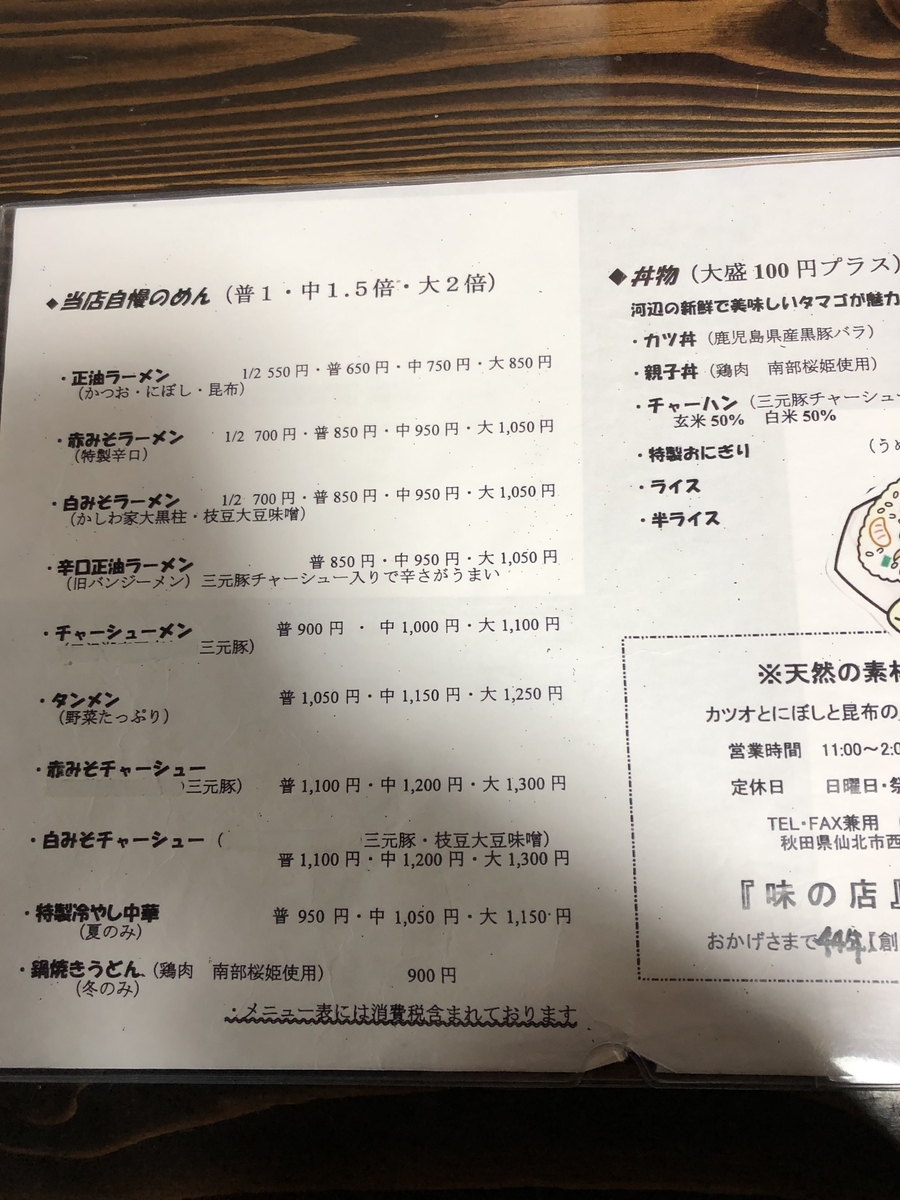 ◆当店自慢のめん（普１・中１.５倍・大２倍）
・正油ラーメン 1/2 550円・普650円・中750円・大850円
（かつお・にぼし・昆布）
・赤みそラーメン 1/2 700円・普850円・中950円・大1,050円
（特製辛口）
・白みそラーメン 1/2 700円・普850円・中950円・大1,050円
（かしわ家大黒柱・枝豆大豆味噌）
・辛口正油ラーメン 普850円・中950円・大1,050円
（旧バンジーメン）三元豚チャーシュー入りで辛さがうまい
・チャーシューメン 普900円・中1,000円・大1,100円
三元豚）
・タンメン 普1,050円・中1,150円・大1,250円
（野菜たっぷり）
・赤みそチャーシュー
三元豚） 普1,100円・中1,200円・大1,300円
・白みそチャーシュー（ 三元豚・枝豆大豆味噌）
普1,100円・中1,200円・大1,300円
・特製冷やし中華 普950円・中1,050円・大1,150円
（夏のみ）
・鍋焼きうどん、（鶏肉 南部桜姫使用） 900円
（冬のみ）
・メニュー表には消費税含まれております
◆丼物（大盛100円プラス）
河辺の新鮮で美味しいタマゴが魅力
・カツ丼（鹿児島県産黒豚バラ）
・親子丼（鶏肉 南部桜姫使用）
・チャーハン（三元豚チャーシュー
玄米50% 白米50%
・特製おにぎり （うめ
・ライス
・半ライス
※天然の素材
カツオとにぼしと昆布の
営業時間 11:00～2:0
定休日 日曜日・祭
TEL・FAX兼用
秋田県仙北市西
『味の店』
おかげさまで44年【創